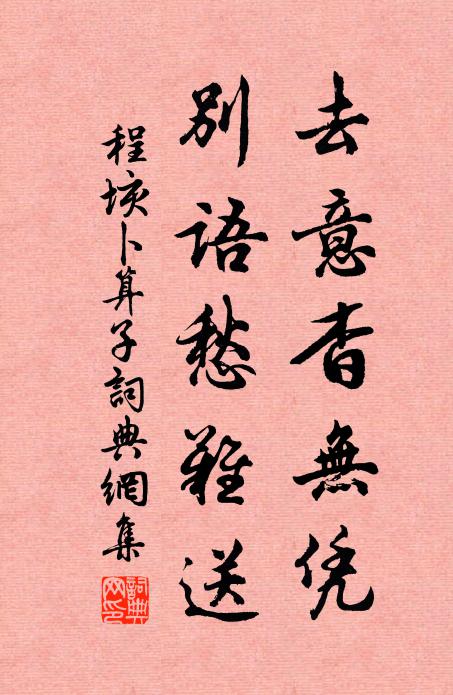 去意杳無凭
別語愁難送
程垓卜算子詞典網集
詞典网印